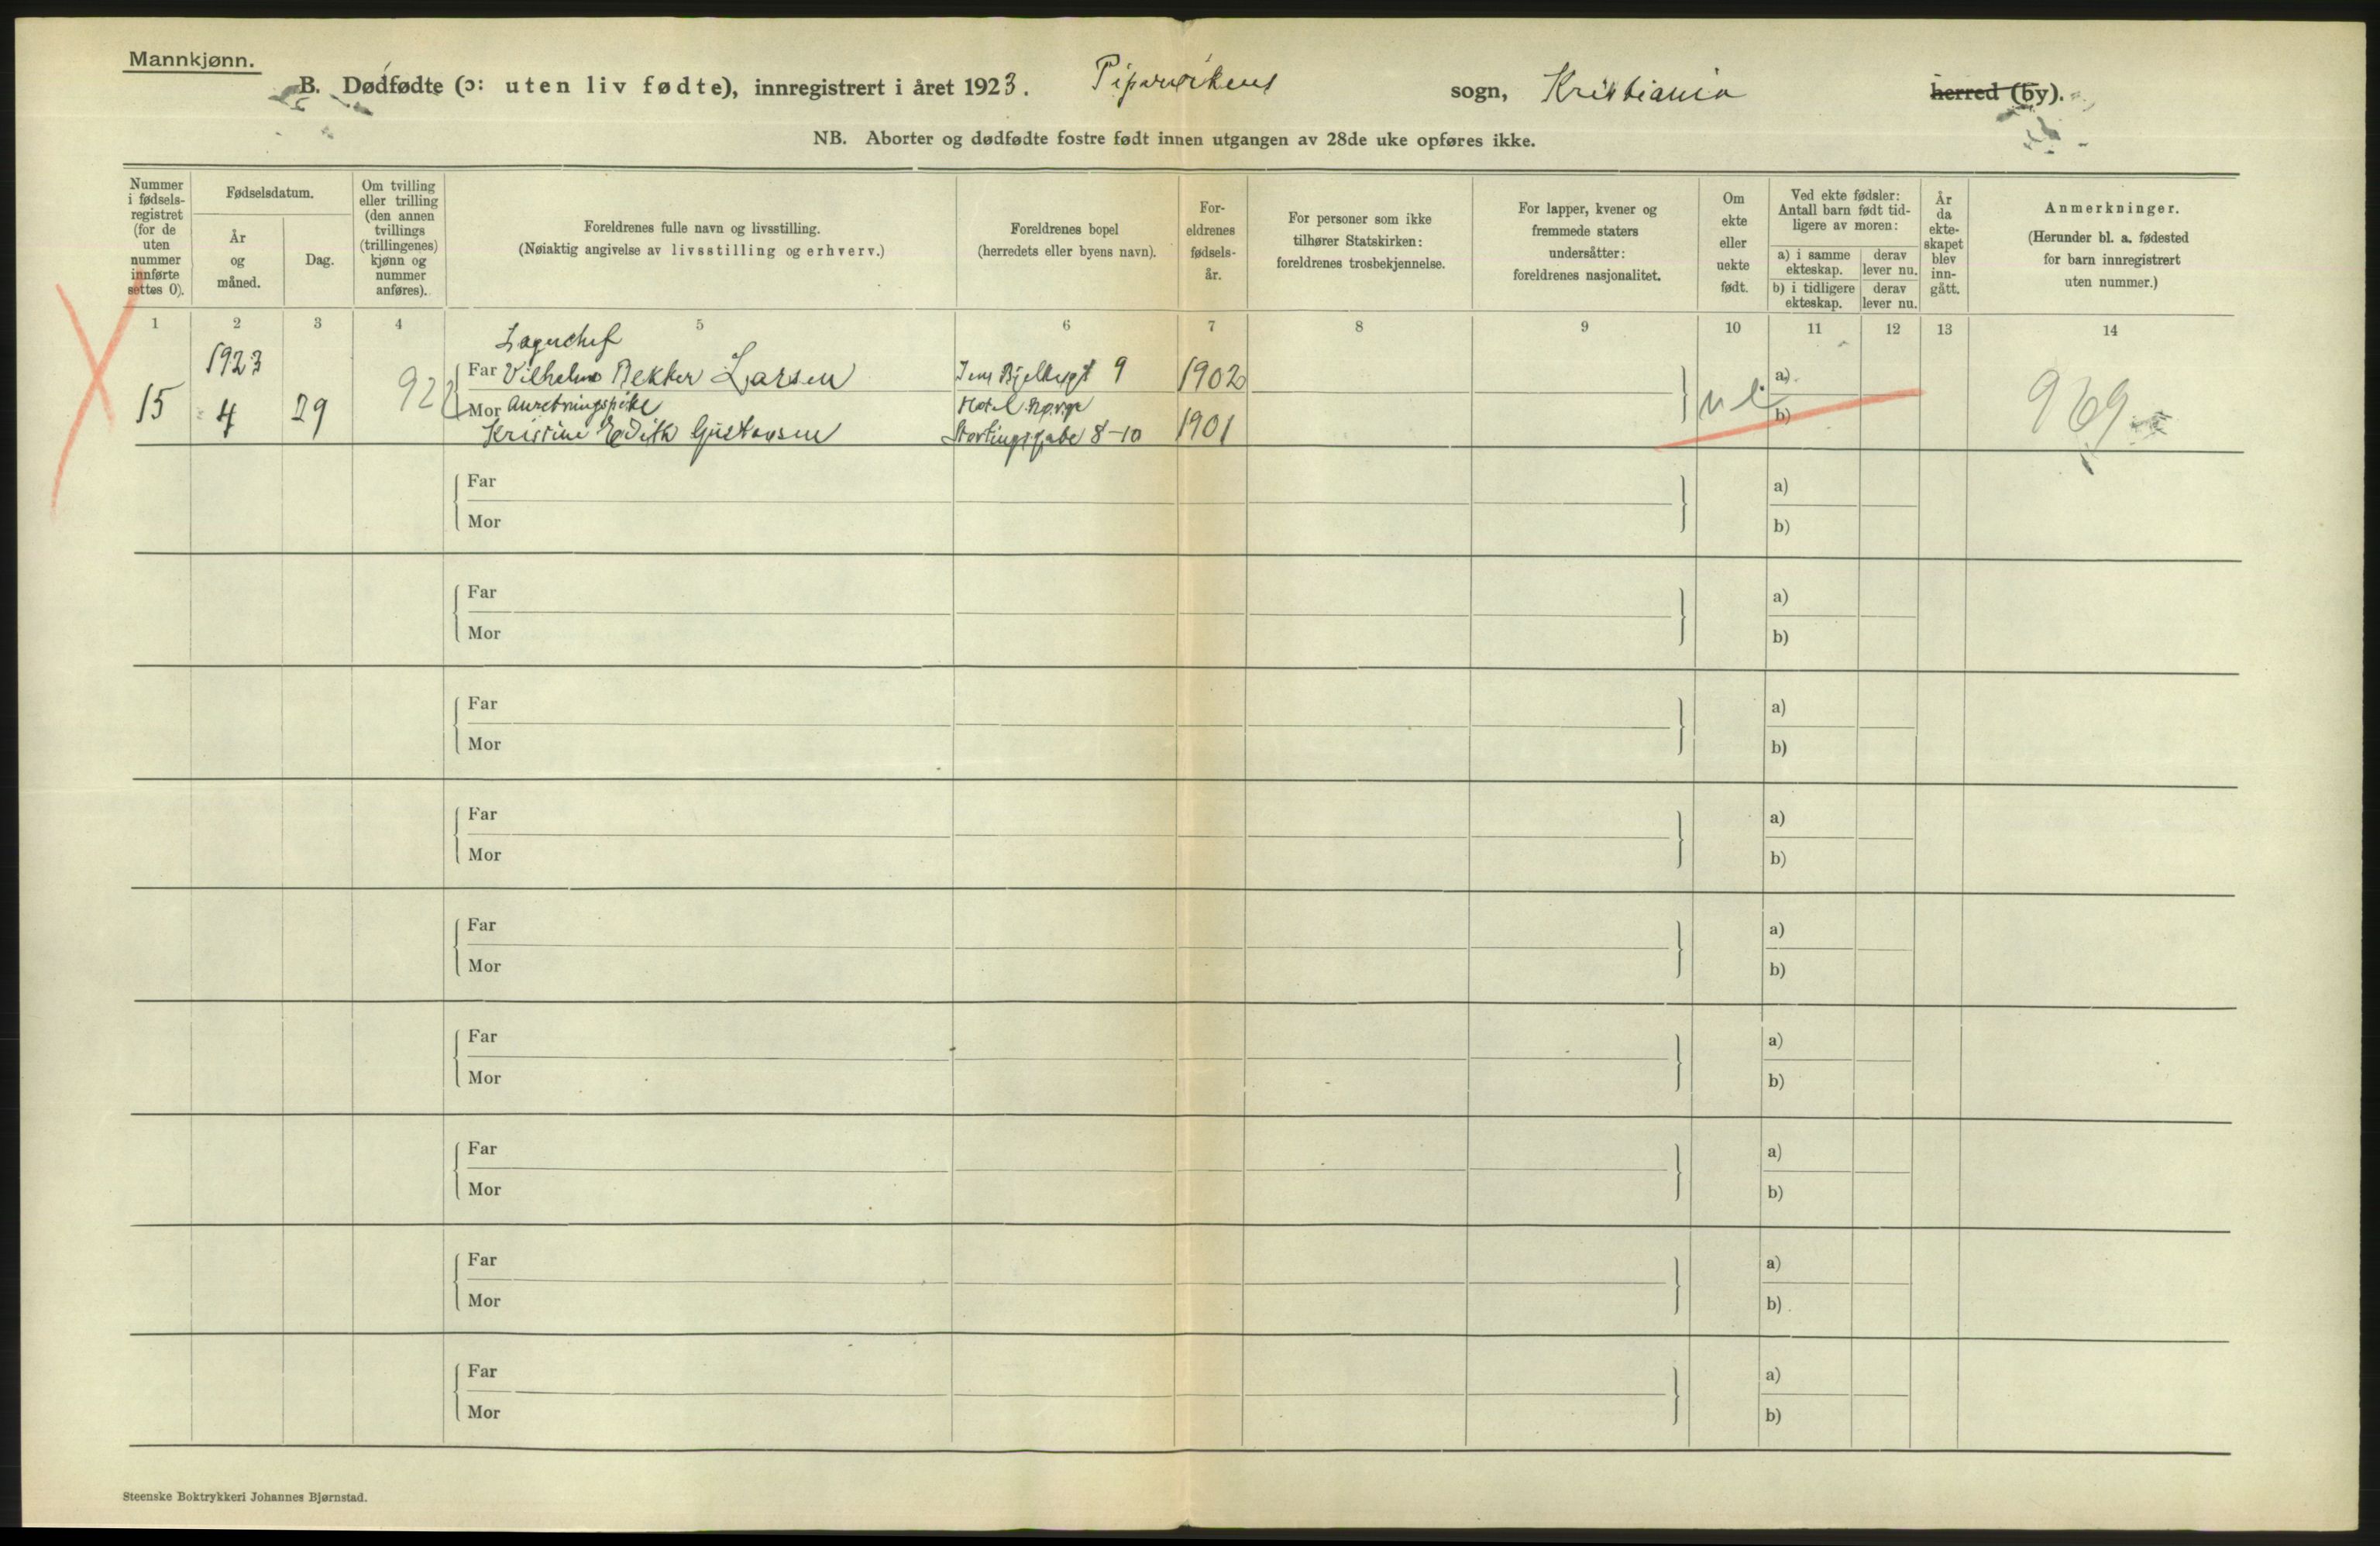 Mannkjønn.
B. Dødfødte (ɔ: uten liv fødte), innregistrert i året 1923. Pipervikens sogn, Kristiania herred (by).
NB. Aborter og dødfødte fostre født innen utgangen av 28de uke opføres ikke.
Nummer i fødsels-registret (for de uten nummer innførte settes 0).
Fødselsdatum.
År og måned.
Dag.
Om tvilling eller trilling (den annen tvillings (trillingenes) kjønn og nummer anføres).
Foreldrenes fulle navn og livsstilling.
(Nøiaktig angivelse av livsstilling og erhverv.)
Foreldrenes bopel
(herredets eller byens navn).
For-eldrenes fødsels-år.
For personer som ikke tilhører Statskirken: foreldrenes trosbekjennelse.
For lapper, kvener og fremmede staters undersåtter: foreldrenes nasjonalitet.
Om ekte eller uekte født.
Ved ekte fødsler: Antall barn født tid-ligere av moren:
a) i samme ekteskap.
derav lever nu.
b) i tidligere ekteskap.
derav lever nu.
År da ekte-skapet blev inn-gått.
Anmerkninger.
(Herunder bl. a. fødested for barn innregistrert uten nummer.)
1 2 3 4 5 6 7 8 9 10 11 12 13 14
Lagerchef
1923
Far Vilhelm Bekker Larsen 9 1902 a)
15 4 29 922 Mor Anretningspike Hotel Norge ue b) 969
Kristine Edith Gustavsen Stortingsgate 8-10 1901
Far a)
Mor b)
Far a)
Mor b)
Far a)
Mor b)
Far a)
Mor b)
Far a)
Mor b)
Far a)
Mor b)
Far a)
Mor b)
Far a)
Mor b)
Far a)
Mor b)
Steenske Boktrykkeri Johannes Bjørnstad.